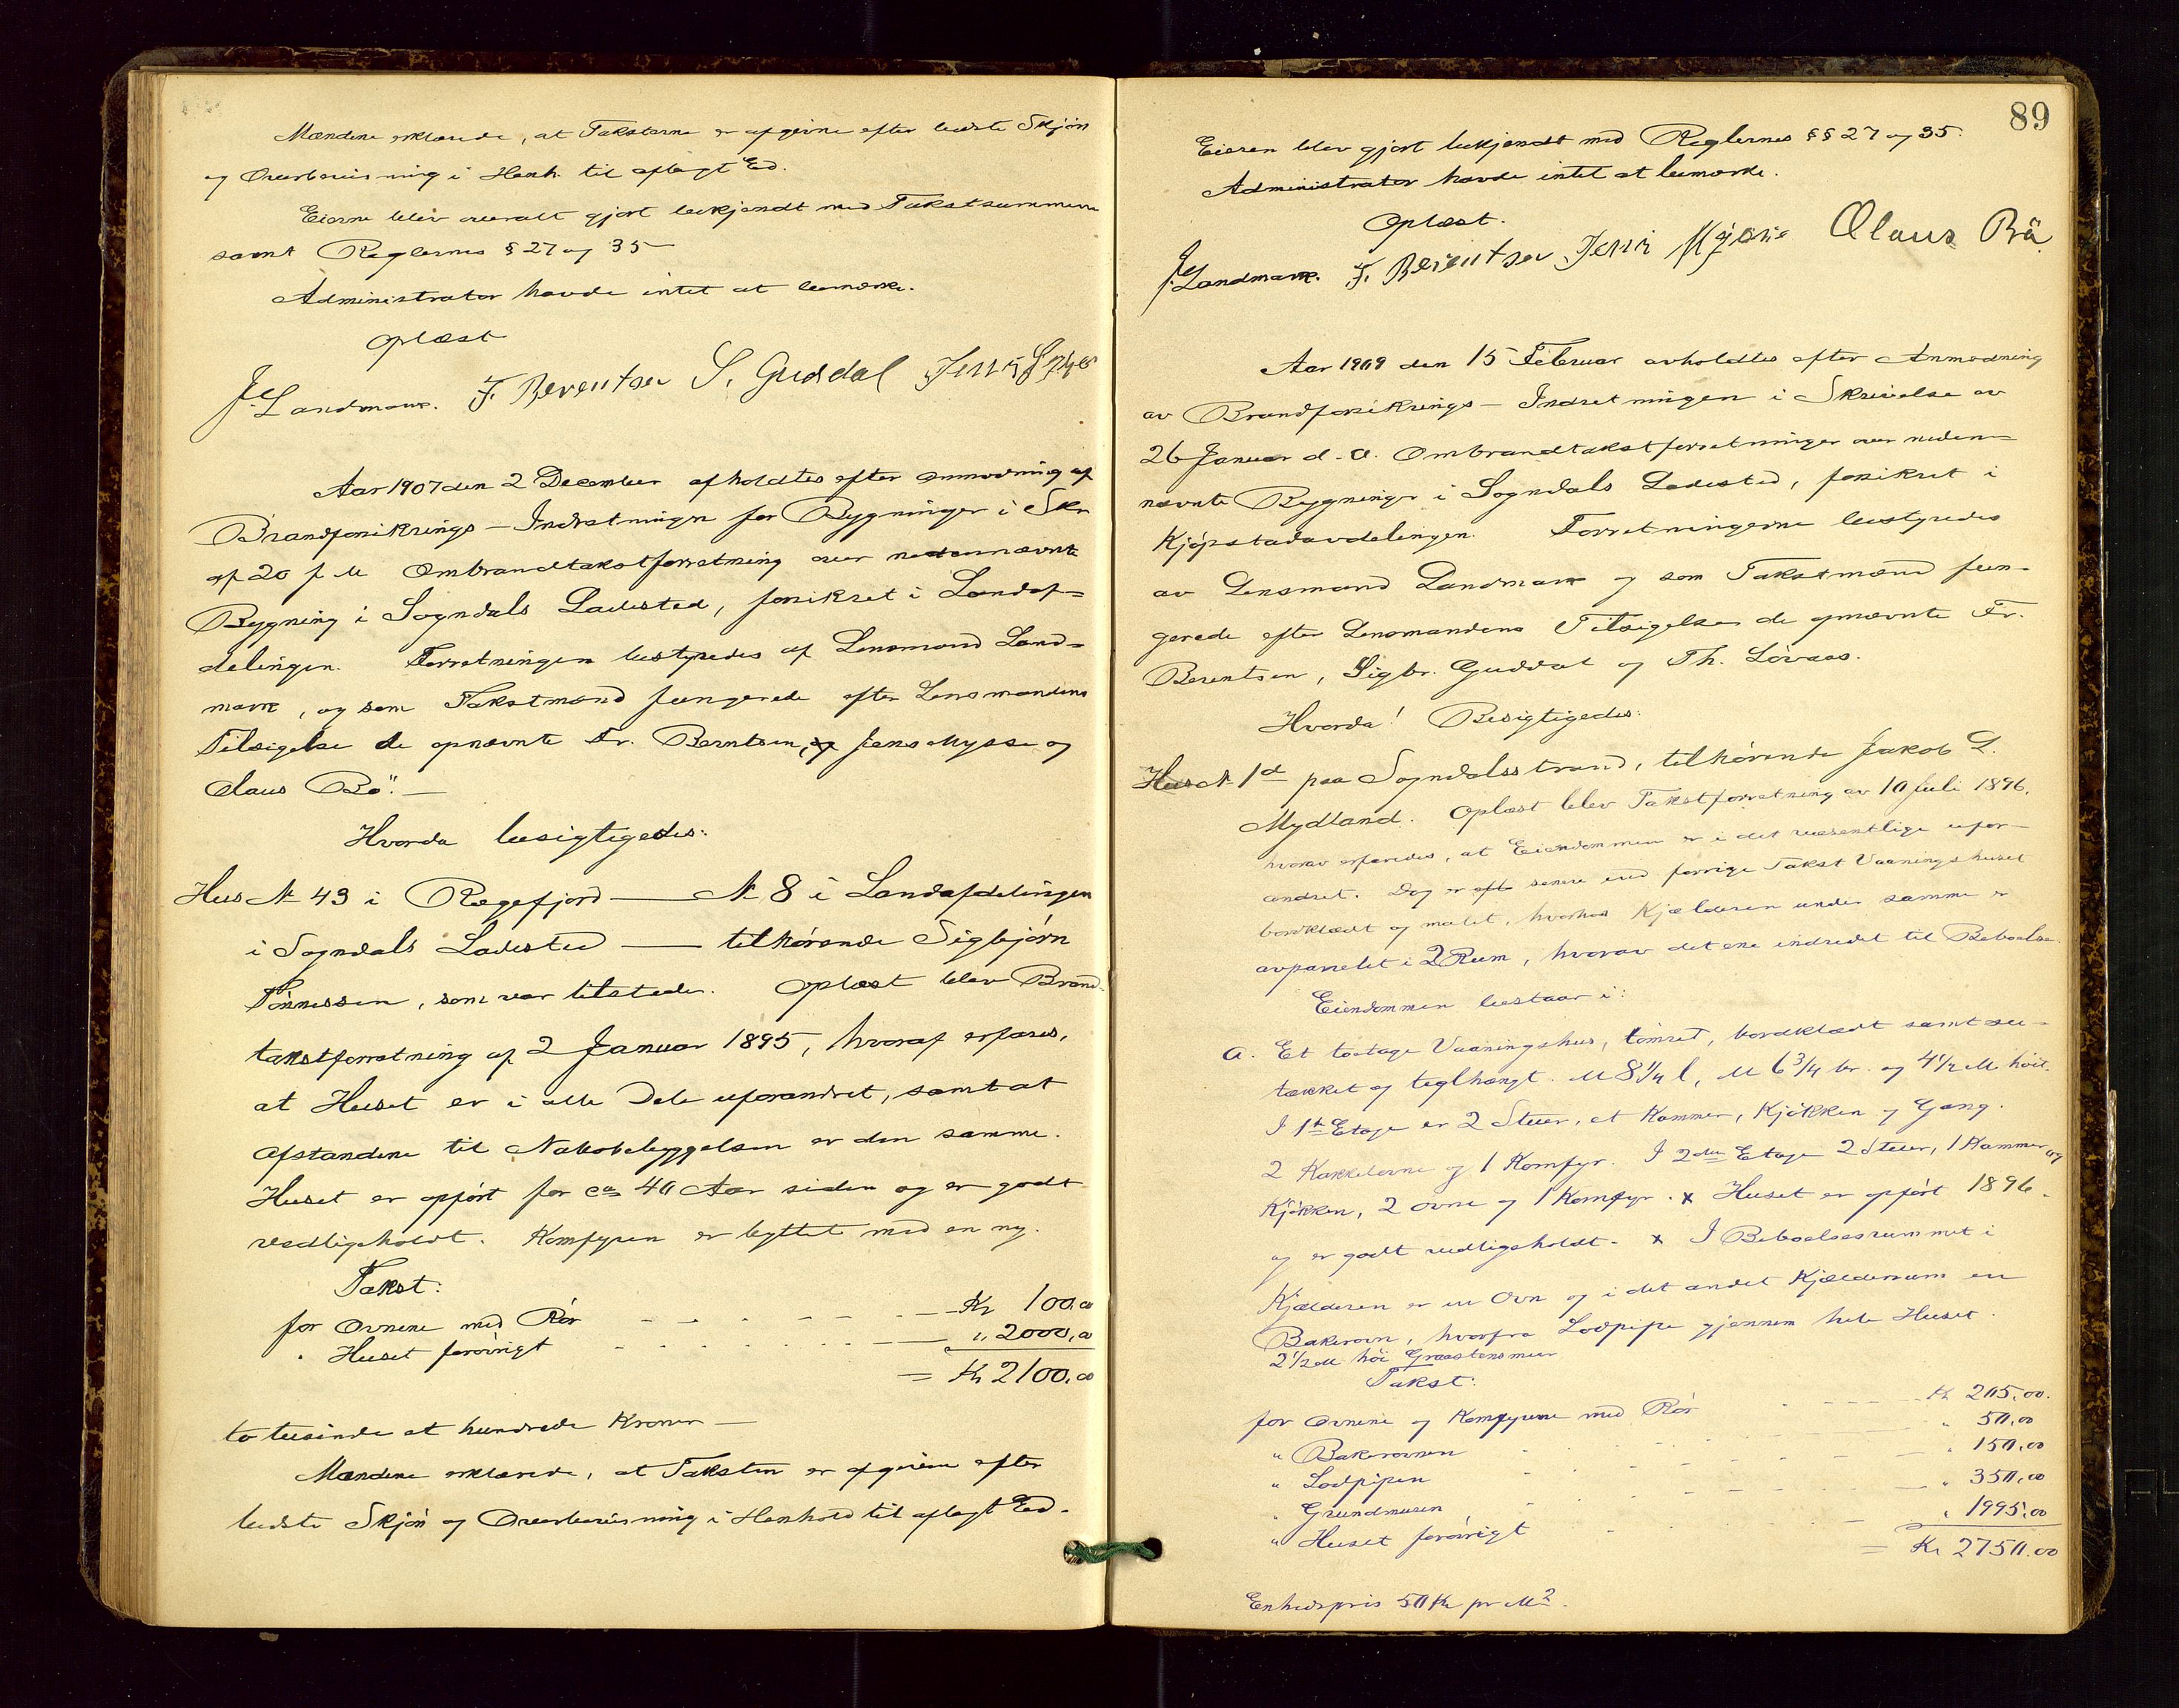 Mændene erklærede, at Taksterne er afgivne efter bedste Skjøn
og Overbevisning i Henh. til aflagt Ed.
Eierne blev overalt gjort bekjendt med Takstsummerne
samt Reglernes § 27 og 35 —
Administrator havde intet at bemærke.
Oplæst
J. Landmark. F. Berentsen S. Guddal Jens
Aar 1907 den 2 December afholdtes efter Anmodning af
Brandforsikrings-Indretningen for Bygninger i Skr
af 20 f M Ombrandtakstforretning over nedennævnte
Bygning i Sogndals Ladested, forsikret i Landaf=
delingen. Forretningen bestyredes af Lensmand Land=
mark, og som Takstmænd fungerede efter Lensmandens
Tilsigelse de opnævnte Fr. Berntsen, Jens Mysse og
Olaus Bö. —
Hvorda besigtigedes:
Hus N 43 i Rægefjord — N 8 i Landafdelingen
i Sogndals Ladested — tilhörende Sigbjörn
Tönnessen, som var tilstede. Oplæst blev Brand-
takstforretning af 2 Januar 1895, hvoraf erfares,
at Huset er i alle Dele uforandret, samt at
Afstandene til Nabobebyggelsen er den samme.
Huset er opfört for ca 40 Aar siden og er godt
vedligeholdt. Komfyren er byttet med en ny.
Takst:
for Ovnene med Rör — Kr 100.00
" Huset forövrigt — " 2000,00
= Kr 2100,00
to tusinde et hundrede Kroner —
Mændene erklærede, at Taksten er afgiven efter
bedste Skjön og Overbevisning i Henhold til aflagt Ed.
89
Eieren blev gjort bekjendt med Reglernes §§ 27 og 35.
Administrator havde intet at bemærke.
Oplæst.
J. Landmark. F. Berentsen Jens Olaus Bö
Aar 1909 den 15 Februar avholdtes efter Anmodning
av Brandforsikrings-Indretningen i Skrivelse av
26 Januar d. A. Ombrandtakstforretninger over neden=
nævnte Bygninger i Sogndals Ladested, forsikret i
Kjöpstadavdelingen. Forretningerne bestyredes
av Lensmand Landmark og som Takstmænd fun-
gerede efter Lensmandens Tilsigelse de opnævnte Fr.
Berentsen, Sigbr. Guddal og Th. Lövaas.
Hvorda! Besigtigedes:
Hus N 1d paa Sogndalsstrand, tilhörende Jakob L.
Mydland. Oplæst blev Takstforretning av 10 Juli 1896,
hvorav erfaredes, at Eiendommen er i det væsentlige ufor-
andret. Dog er efter senere end forrige Takst Vaaningshuset
bordklædt og malet, hvorhos Kjælderen under samme er
avparrelet i 2 Rum, hvorav det ene indredet til Beboelse.
Eiendommen bestaar i:
a. Et toetages Vaaningshus, tömret, bordklædt samt su-
tækket og teglhængt. M 8 1/4 l, M 6 3/4 br. og 4 1/2 M höit.
I 1ste Etage er 2 Stuer, et Kammer, Kjökken og Gang.
2 Kakkelovne og 1 Komfyr. I 2den Etage 2 Stuer, 1 Kammer og
Kjökken, 2 Ovne og 1 Komfyr. x Huset er opfört 1896
og er godt vedligeholdt. x I Beboelsesrummet i
Kjælderen er en Ovn og i det andet Kjælderrum en
Bakerovn, hvorfra Lodpipe gjennem hele Huset.
2 1/2 M höi Graastensmur
Takst:
for Ovnene og Komfyrene med Rör — Kr 205,00.
" Bakerovnen — " 50,00
" Lodpipen — " 150,00
" Grundmuren — " 350,00
" Huset forövrigt — " 1995,00
= Kr 2750.00
Enhedspris 50 Kr pr M2.